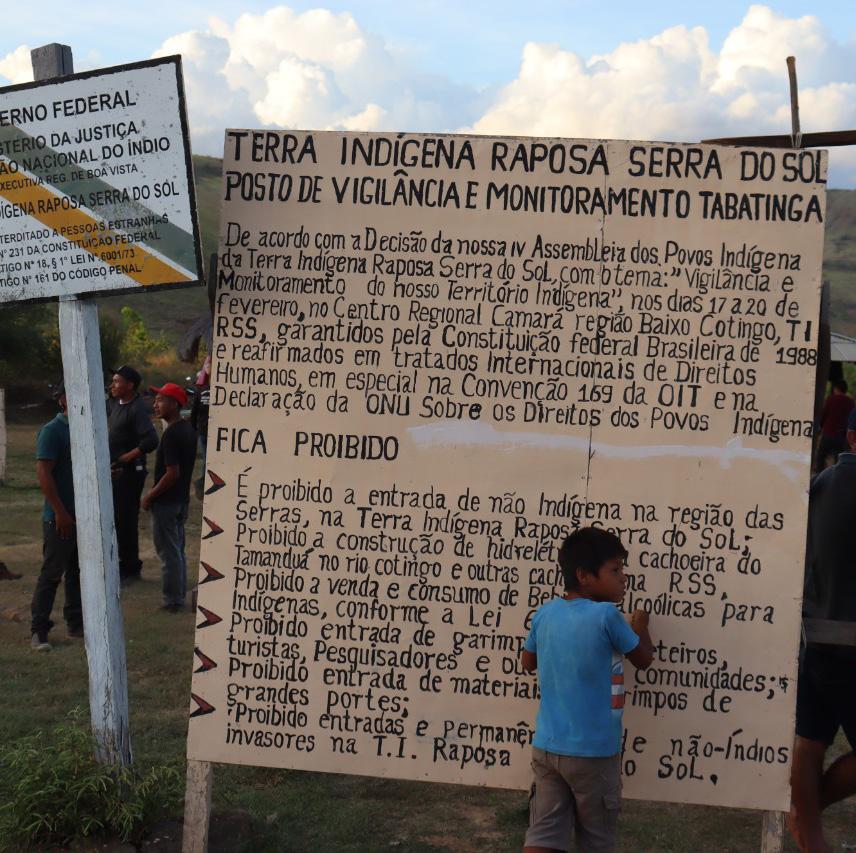 ERNO FEDERAL
STÉRIO DA JUSTIÇA
ÃO NACIONAL DO ÍNDIO
EXECUTIVA REG. DE BOA VISTA
ÍGENA RAPOSA SERRA DO SÓL
NTERDITADO A PESSOAS ESTRANHAS
Nº 231 DA CONSTITUIÇÃO FEDERAL
TIGO Nº 18, § 1º LEI Nº 6001/73
TIGO Nº 161 DO CÓDIGO PENAL
TERRA INDÍGENA RAPOSA SERRA DO SOL
POSTO DE VIGILÂNCIA E MONITORAMENTO TABATINGA
De acordo com a Decisão da nossa IV Assembleia dos Povos Indígena
da Terra Indígena Raposa Serra do Sol, com o tema: "Vigilância e
Monitoramento do nosso Território Indígena", nos dias 17 a 20 de
fevereiro, no Centro Regional Camará região Baixo Cotingo, TI
RSS, garantidos pela Constituição federal Brasileira de 1988
e reafirmados em tratados Internacionais de Direitos
Humanos, em especial na Convenção 169 da OIT e na
Declaração da ONU Sobre os Direitos dos Povos Indígena
FICA PROIBIDO
É proibido a entrada de não Indígena na região das
Serras, na Terra Indígena Raposa Serra do Sol;
Proibido a construção de hidrelét cachoeira do
Tamanduá no rio cotingo e outras cach na RSS,
Proibido a venda e consumo de Be alcoólicas para
Indígenas, conforme a Lei
Proibido entrada de garimp eteiros,
turistas, Pesquisadores e ou comunidades;
Proibido entrada de materiais rimpos de
grandes portes;
Proibido entradas e permanên de não-Índios
invasores na T.I. Raposa do Sol.